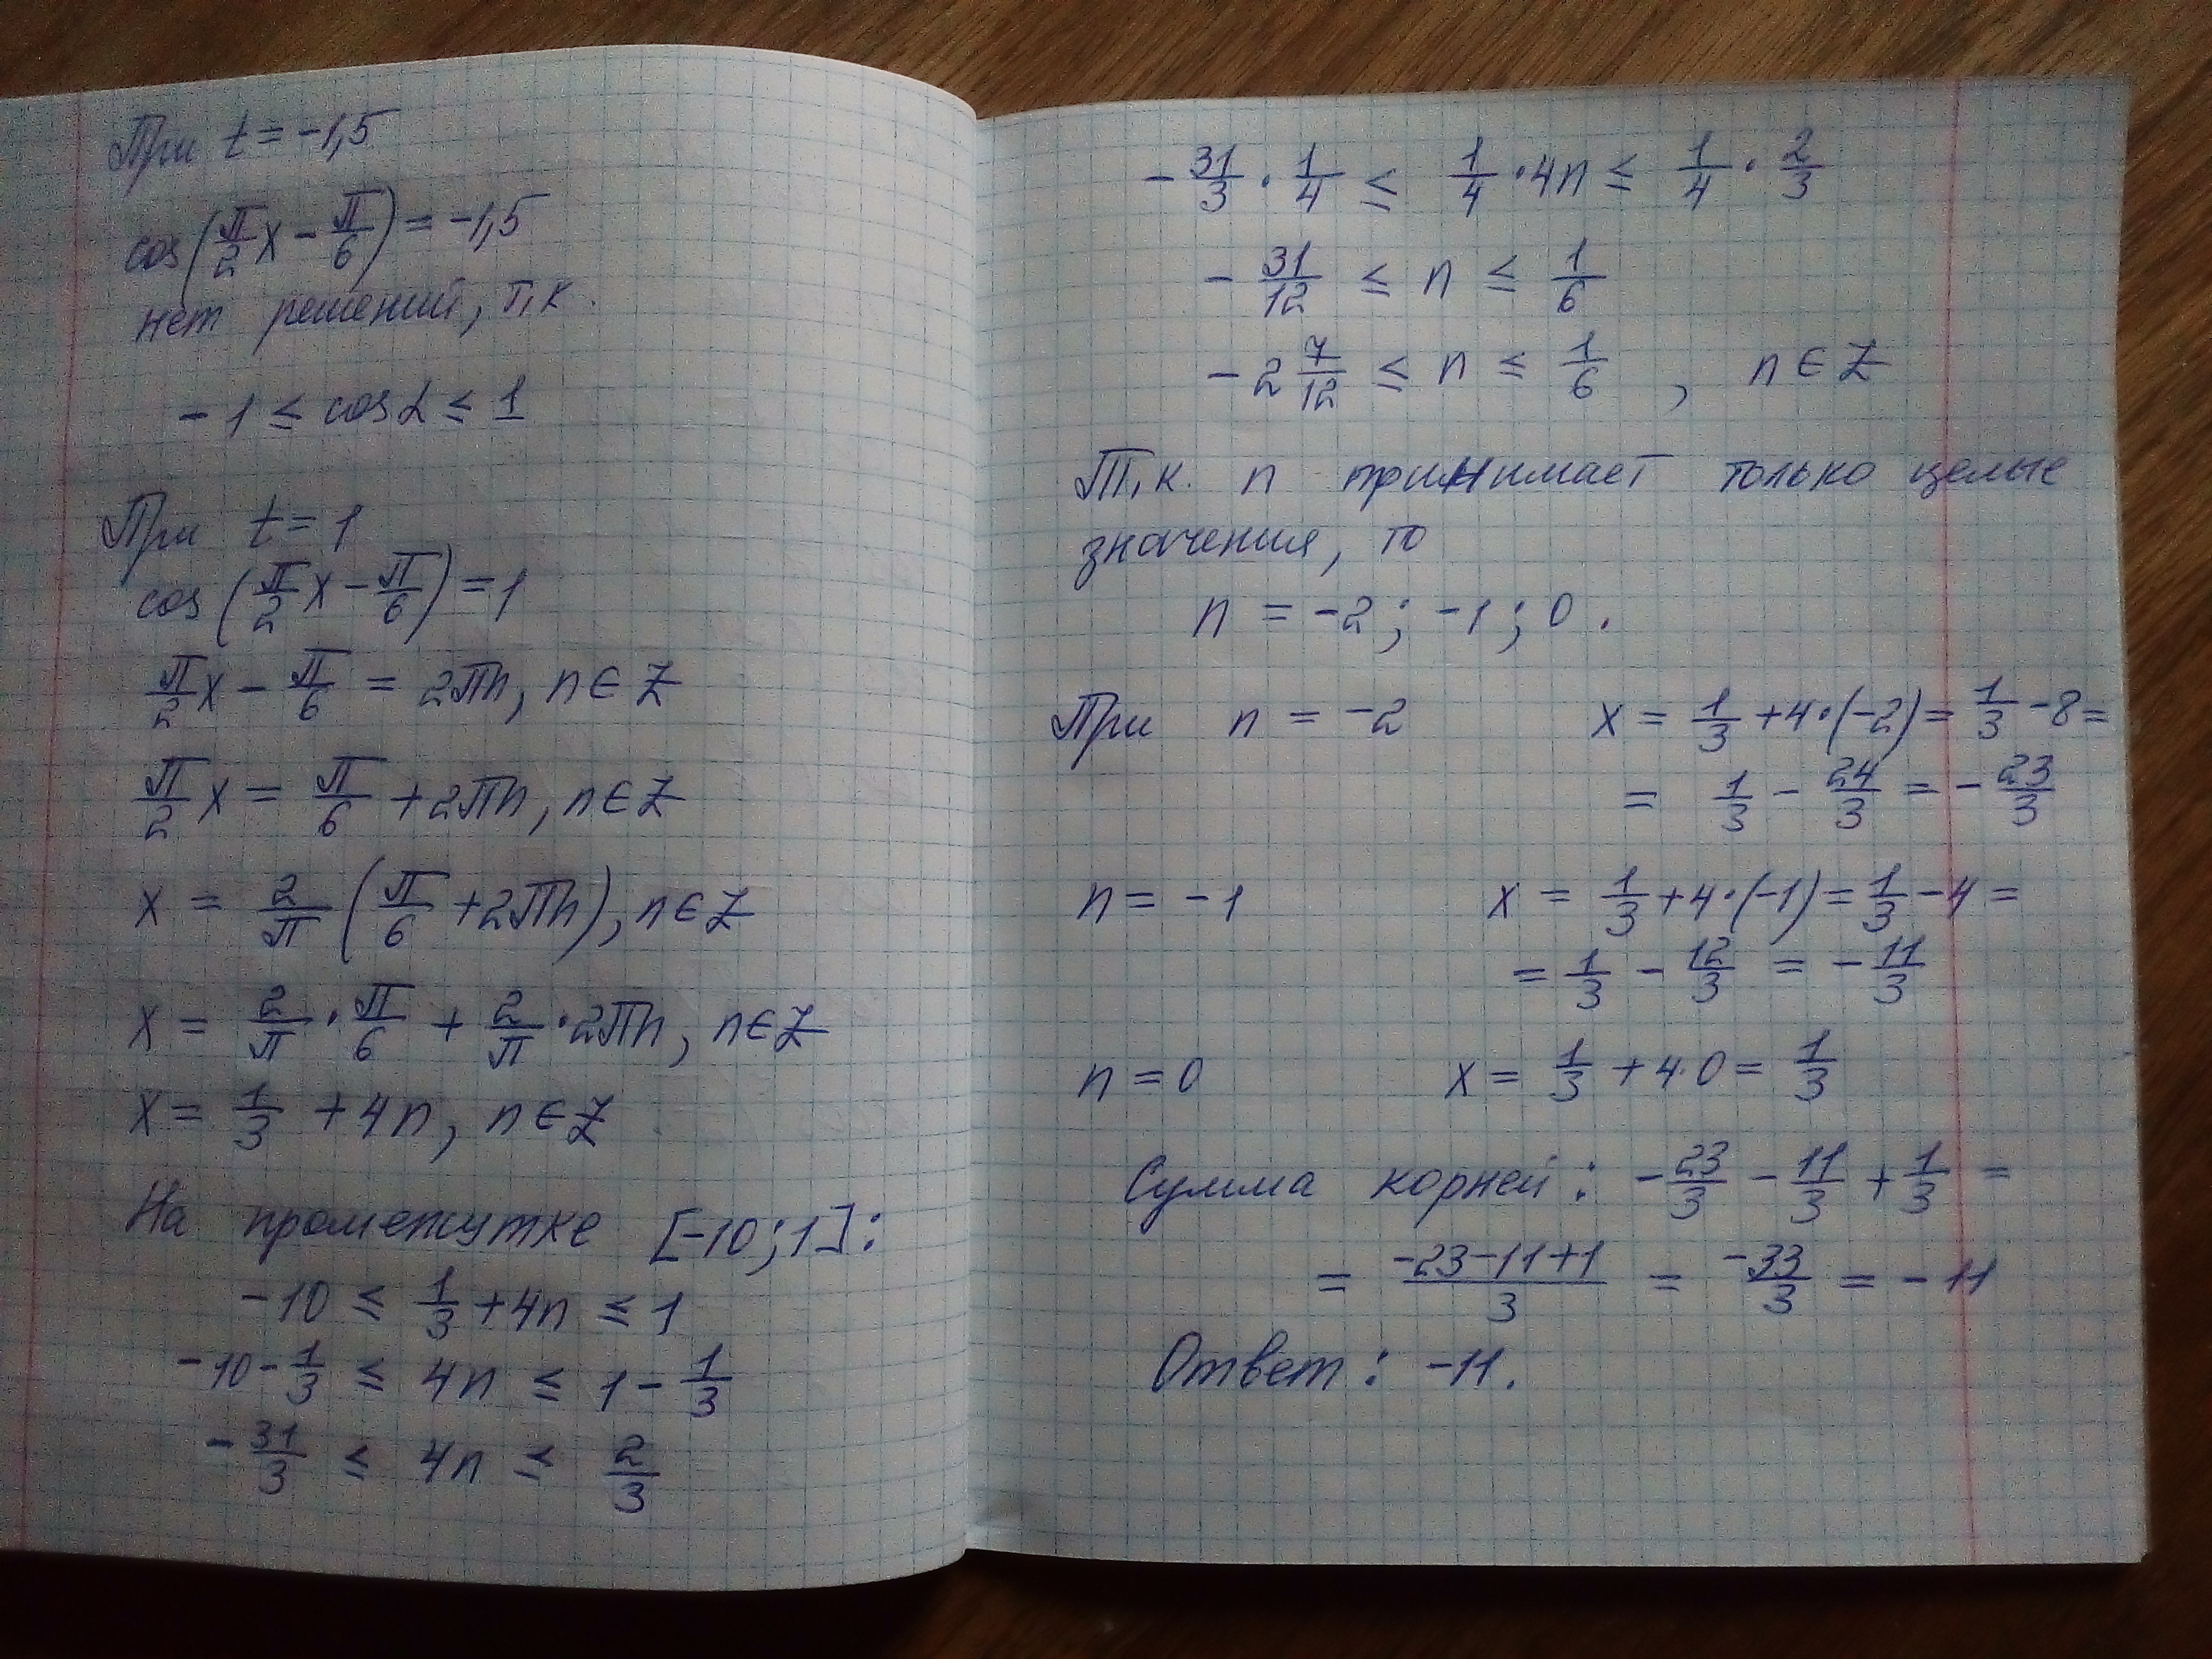 При t = -1,5
cos(π/2 x - π/6) = -1,5
нет решений, т.к.
-1 ≤ cos α ≤ 1
При t = 1
cos(π/2 x - π/6) = 1
π/2 x - π/6 = 2πn, n ∈ Z
π/2 x = π/6 + 2πn, n ∈ Z
x = 2/π (π/6 + 2πn), n ∈ Z
x = 2/π · π/6 + 2/π · 2πn, n ∈ Z
x = 1/3 + 4n, n ∈ Z
На промежутке [-10; 1]:
-10 ≤ 1/3 + 4n ≤ 1
-10 - 1/3 ≤ 4n ≤ 1 - 1/3
-31/3 ≤ 4n ≤ 2/3
-31/3 · 1/4 ≤ 1/4 · 4n ≤ 1/4 · 2/3
-31/12 ≤ n ≤ 1/6
-2 7/12 ≤ n ≤ 1/6 , n ∈ Z
Т.к. n принимает только целые
значения, то
n = -2; -1; 0.
При n = -2 x = 1/3 + 4·(-2) = 1/3 - 8 =
= 1/3 - 24/3 = -23/3
n = -1 x = 1/3 + 4·(-1) = 1/3 - 4 =
= 1/3 - 12/3 = -11/3
n = 0 x = 1/3 + 4·0 = 1/3
Сумма корней: -23/3 - 11/3 + 1/3 =
= (-23-11+1)/3 = -33/3 = -11
Ответ: -11.